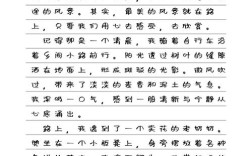 途的风景。其实,最美的风景就在路
上,只要我们用心去感受、去欣赏。
记得那是一个清晨,我骑着自行车沿
着乡间小路前行。阳光透过树叶的缝隙
洒在地面上,形成斑驳的光影。微风吹
过,带来阵阵麦香和泥土的气息。
我深吸一口气,感到一股清新与宁静从
心底涌出。
路上,我遇到了一个卖花的老奶奶。
她坐在一个小板凳上,身旁摆放着各种